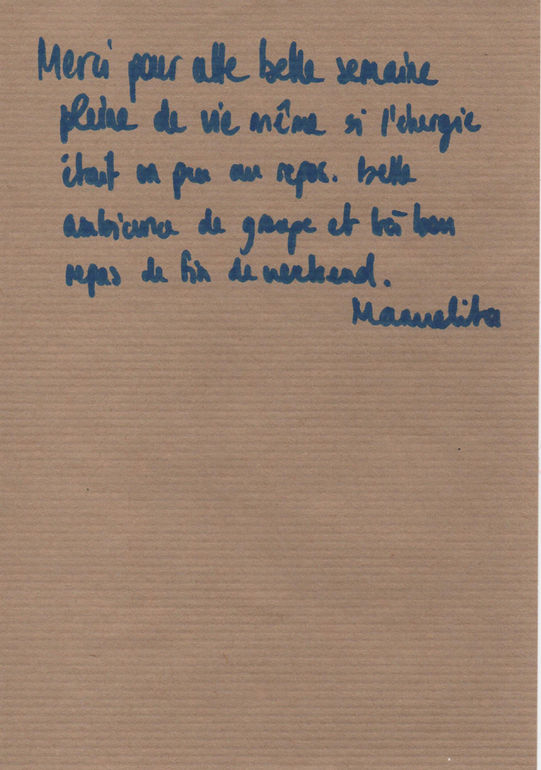 Merci pour cette belle semaine
pleine de vie même si l'énergie
était un peu au repos. belle
ambiance de groupe et très bon
repas de fin de weekend.
Manuelita